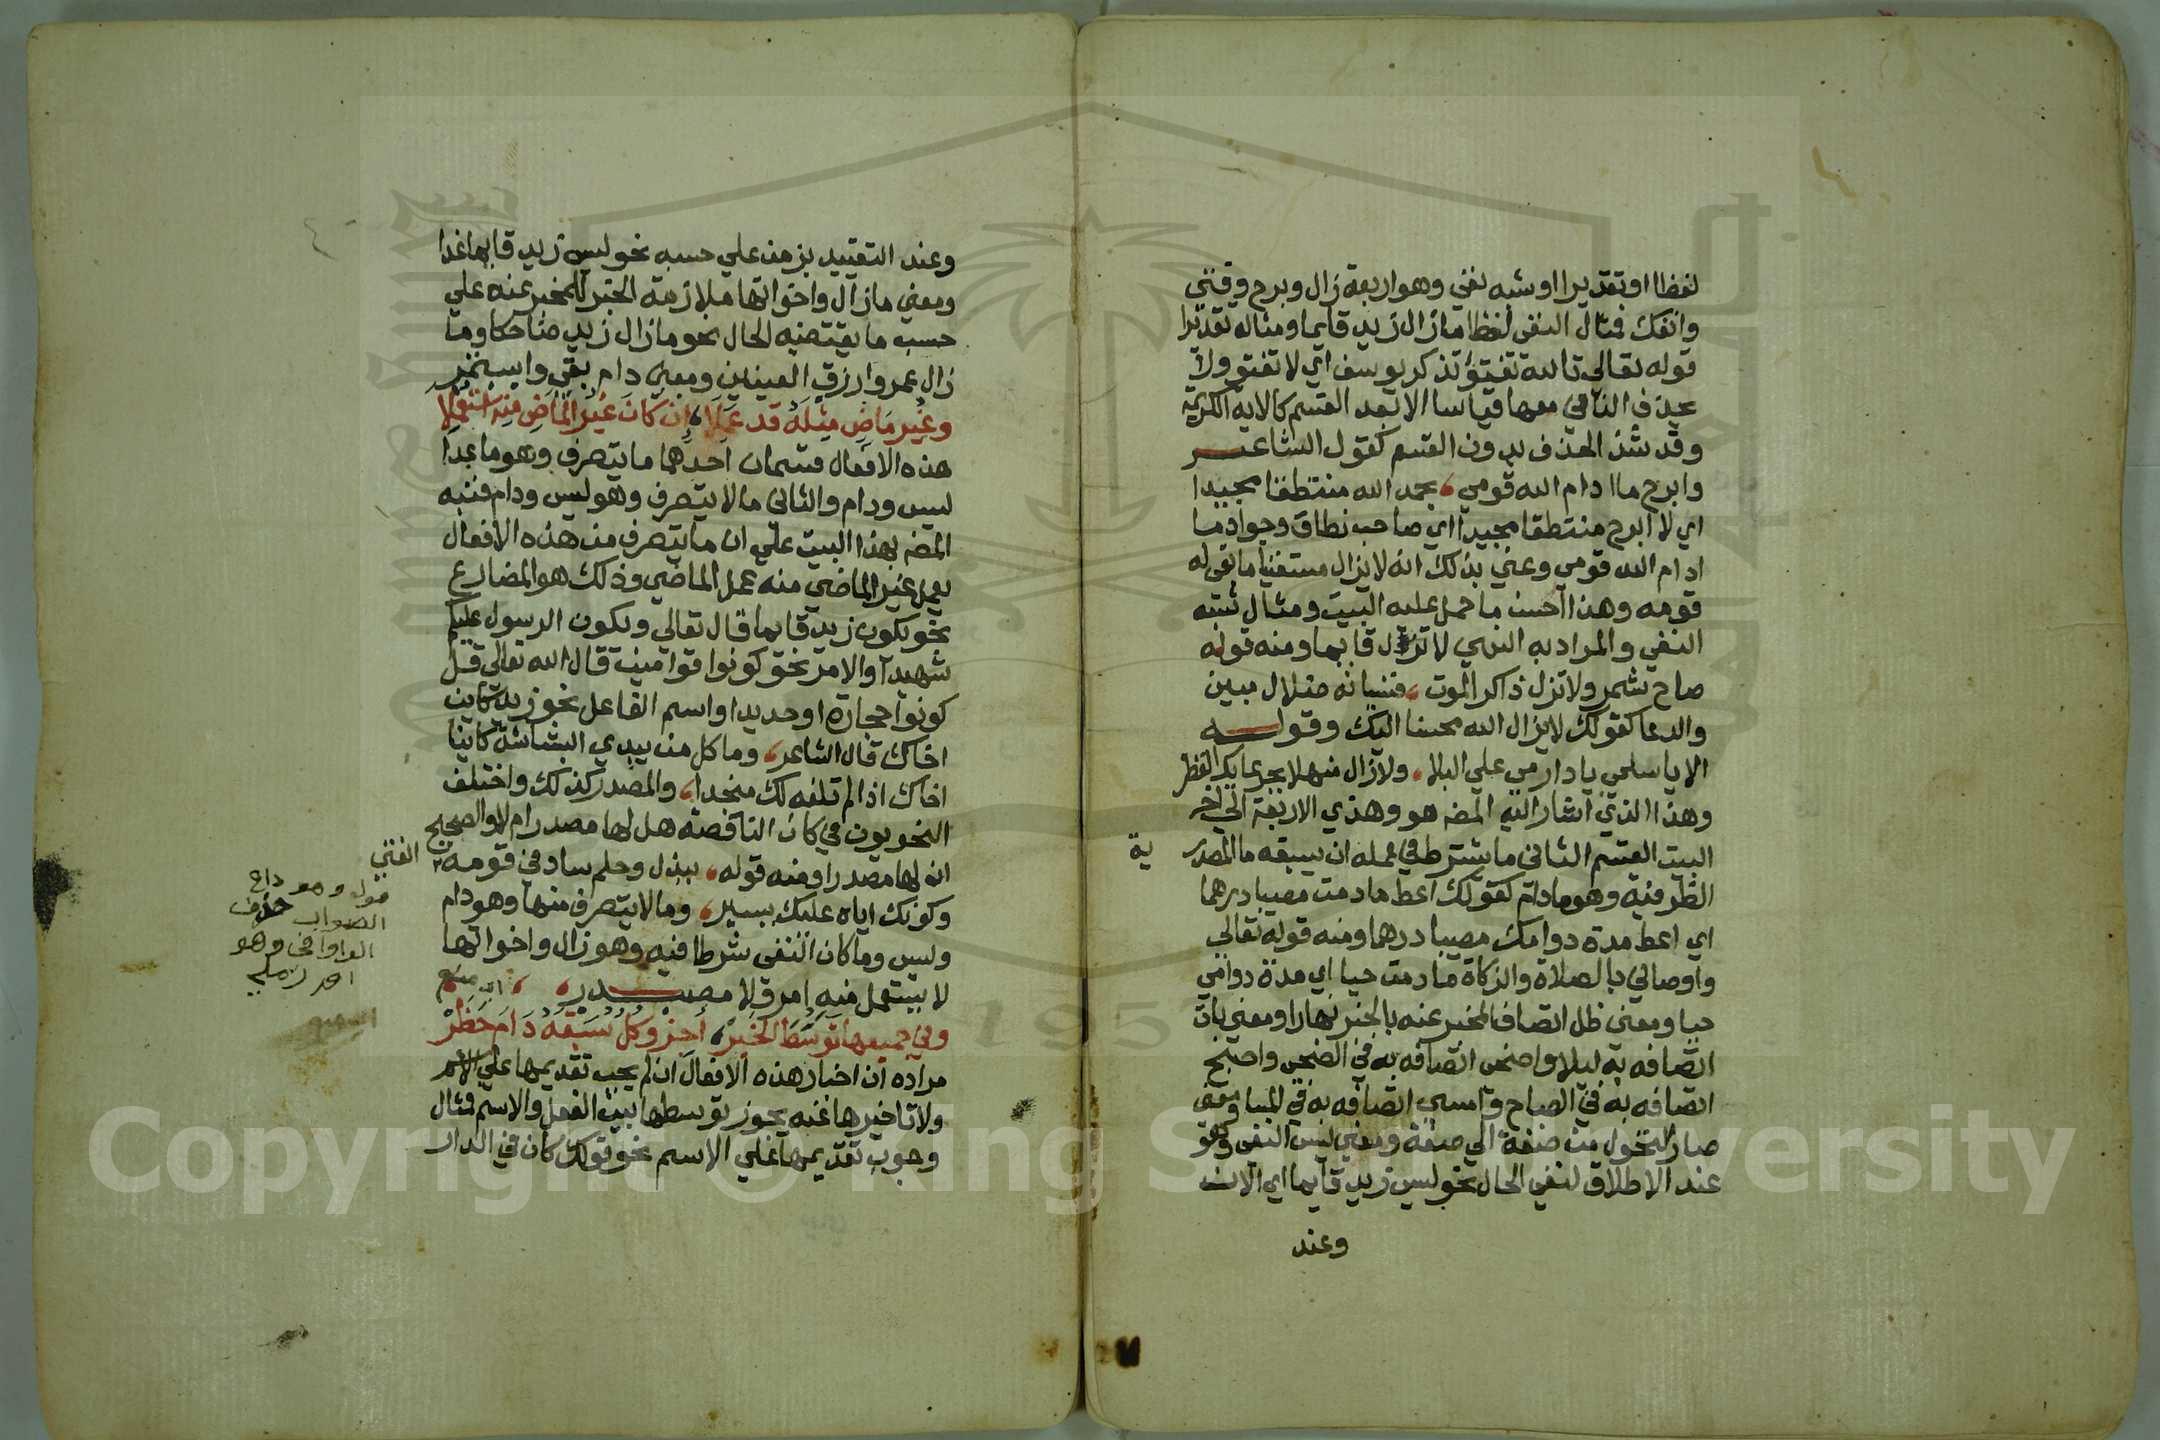 لفظا او تقديرا او شبه نفي وهو اربعة زال وبرح وفتئ
وانفك فمثال النفي لفظا ما زال زيد قايما ومثاله تقديرا
قوله تعالي تالله تفتؤ تذكر يوسف اي لا تفتؤ ولا
يحذف النافي معها قياسا الا بعد القسم كالاية الكريمة
وقد شذ الحذف بدون القسم كقول الشاعر
وابرح ما ادام الله قومي ، بحمد الله منتطقا مجيدا
اي لا ابرح منتطقا مجيدا اي صاحب نطاق وجواد ما
ادام الله قومي وعني بذلك انه لا يزال مستغنيا ما بقي له
قومه وهذا احسن ما حمل عليه البيت ومثال شبه
النفي والمراد به النهي لا تزل قايما ومنه قوله
صاح شمر ولا تزل ذاكر الموت ، فنسيانه ضلال مبين
والدعا كقولك لا يزال الله محسنا اليك وقوله
الا يا سلمي يا دار مي علي البلا ، ولا زال منهلا بجرعايك القطر
وهذا الذي اشار اليه المص هو وهذي الاربعة الي اخر
البيت القسم الثاني ما يشترط في عمله ان يسبقه ما المصدر
ية
الظرفية وهو ما دام كقولك اعط ما دمت مصيبا درهما
اي اعط مدة دوامك مصيبا درهما ومنه قوله تعالي
واوصاني بالصلاة والزكاة ما دمت حيا اي مدة دوامي
حيا ومعني ظل اتصاف المخبر عنه بالخبر نهارا ومعني بات
اتصافه به ليلا واضحي اتصافه به في الضحي واصبح
اتصافه به في الصباح وامسي اتصافه به في المسا ومعني
صار التحول من صفة الي صفة ومعني ليس النفي وهو
عند الاطلاق لنفي الحال نحو ليس زيد قايما اي الان
وعند
وعند التقييد بزمن علي حسبه نحو ليس زيد قايما غدا
ومعني ما زال واخواتها ملازمة الخبر للمخبر عنه علي
حسب ما يقتضيه الحال نحو ما زال زيد ضاحكا وما
زال عمرو ازرق العينين ومعني دام بقي واستمر
وغير ماض مثله قد عملا ، ان كان غير الماض منه استعملا
هذه الافعال قسمان احدهما ما يتصرف وهو ما عدا
ليس ودام والثاني ما لا يتصرف وهو ليس ودام فنبه
المص بهذا البيت علي ان ما يتصرف من هذه الافعال
يعمل غير الماضي منه عمل الماضي وذلك هو المضارع
نحو يكون زيد قايما قال تعالي ويكون الرسول عليكم
شهيدا والامر نحو كونوا قوامين قال الله تعالي قل
كونوا حجارة او حديدا واسم الفاعل نحو زيد كاين
اخاك قال الشاعر ، وما كل من يبدي البشاشة كاينا
اخاك اذا لم تلفه لك منجدا ، والمصدر كذلك واختلف
النحويون في كان الناقصة هل لها مصدر ام لا والصحيح
ان لها مصدرا ومنه قوله ، ببذل وحلم ساد في قومه
الفتي
وكونك اياه عليك يسير ، وما لا يتصرف منها وهو دام
وليس وما كان النفي شرطا فيه وهو زال واخواتها
لا يستعمل منه امر ولا مصدر
وفي جميعها توسط الخبر ، اجز وكل سبقه دام حظر
مراده ان اخبار هذه الافعال ان لم يجب تقديمها علي الاسم
ولا تاخيرها عنه يجوز توسطها بين الفعل والاسم فمثال
وجوب تقديمها علي الاسم نحو قولك كان في الدار
قوله وهو دام
الصواب حذف
الواو وهو
Copyright © King Saud University
1957